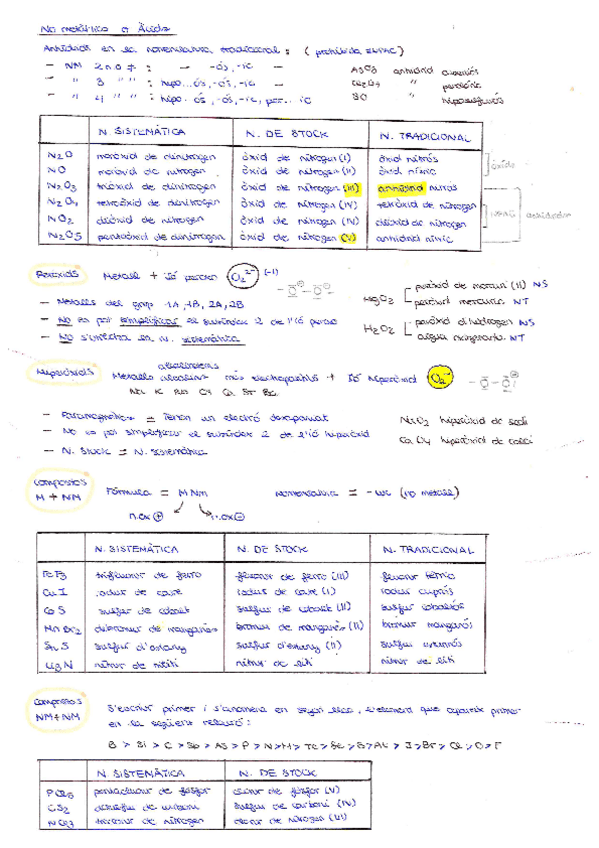 No metàl·lics o Àcids
Anhídrids en la nomenclatura tradicional : ( prohibida IUPAC)
- NM 2 n.o ≠ : - -ós, -ic -
- " 3 " " : hipo...ós, -ós, -ic -
- " 4 " " : hipo...ós, -ós, -ic, per... ic
anhídrid
SO " hiposulfurós
N. SISTEMÀTICA N. DE STOCK N. TRADICIONAL
N2O monòxid de dinitrogen òxid de nitrogen (I) òxid nitrós
NO monòxid de nitrogen òxid de nitrogen (II) òxid nítric
N2O3 triòxid de dinitrogen òxid de nitrogen (III) anhídrid nitrós
N2O4 tetraòxid de dinitrogen òxid de nitrogen (IV) tetraòxid de nitrogen
NO2 diòxid de nitrogen òxid de nitrogen (IV) diòxid de nitrogen
N2O5 pentaòxid de dinitrogen òxid de nitrogen (V) anhídrid nítric
òxids
Peròxids Metall + ió peròxid O2 2- (-1)
- Metalls del grup 1A, 1B, 2A, 2B
- No es pot simplificar el subíndex 2 de l'ió peròxid
- No s'utilitza en n. sistemàtica
HgO2 peròxid de mercuri (II) NS
peròxid mercúric NT
H2O2 peròxid d'hidrogen NS
aigua oxigenada NT
Hiperòxids
alcalinoterris
Metalls alcalins més electropositius + ió hiperòxid O2-
Na K Rb Cs Ca Sr Ba
- Paramagnètics = Tenen un electró desaparellat
- No es pot simplificar el subíndex 2 de l'ió hiperòxid
- N. Stock = N. sistemàtica
NaO2 hiperòxid de sodi
CaO4 hiperòxid de calci
Compostos
M + NM
Fórmula = M Nm nomenclatura = -ur (no metall)
n.ox ⊕ n.ox ⊖
N. SISTEMÀTICA N. DE STOCK N. TRADICIONAL
FeF3 trifluorur de ferro fluorur de ferro (III) fluorur fèrric
CuI iodur de coure iodur de coure (I) iodur cuprós
CoS sulfur de cobalt sulfur de cobalt (II) sulfur cobaltós
MnBr2 dibromur de manganès bromur de manganès (II) bromur manganós
SnS sulfur d'estany sulfur d'estany (II) sulfur estannós
Li3N nitrur de liti nitrur de liti
Compostos
NM+NM
S'escriu primer i s'anomena en segon lloc, l'element que apareix primer
en la següent relació:
B > Si > C > Sb > As > P > N > H > Te > Se > S > At > I > Br > Cl > O > F
N. SISTEMÀTICA N. DE STOCK
PCl5 pentaclorur de fòsfor clorur de fòsfor (V)
CS2 disulfur de carboni sulfur de carboni (IV)
NCl3 triclorur de nitrogen clorur de nitrogen (III)